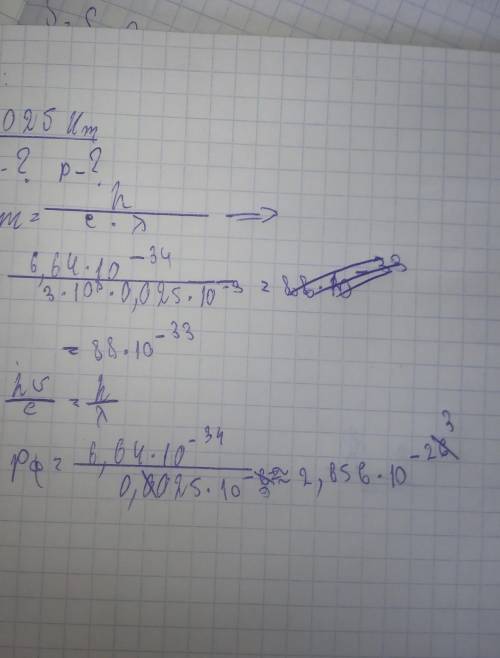 025 Нм
- ? p - ?
m = h / (c · λ) =>
6,64 · 10^-34 / (3 · 10^8 · 0,025 · 10^-3) =
= 88 · 10^-33
hυ / c = h / λ
pф = 6,64 · 10^-34 / (0,025 · 10^-9) ≈ 2,856 · 10^-23